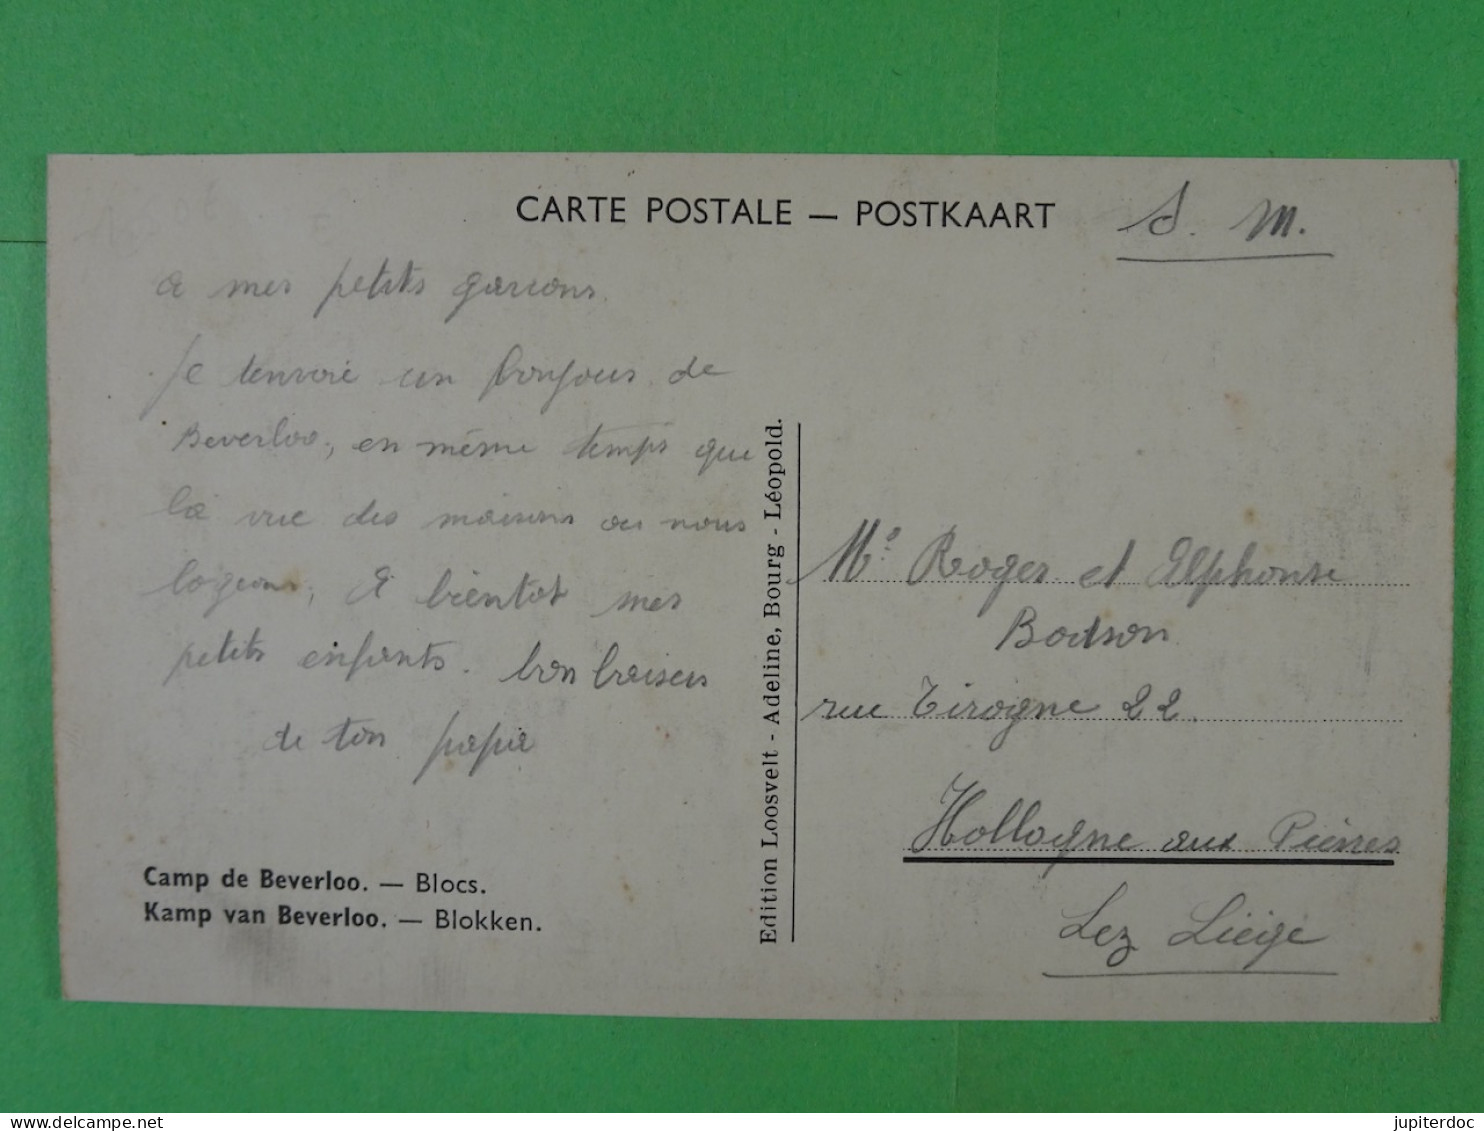 CARTE POSTALE — POSTKAART
S. M.
a mes petits garcons.
Je tenvoie un bonjour de
Beverloo, en même temps que
la vue des maisons ou nous
logeons, A bientot mes
petits enfants. bon baisers
de ton papa
Camp de Beverloo. — Blocs.
Kamp van Beverloo. — Blokken.
Edition Loosvelt - Adeline, Bourg - Léopold.
Mrs Roger et Alphonse
Bodson
rue Tirogne 22
Hollogne aux Pierres
Lez Liège
jupiterdoc